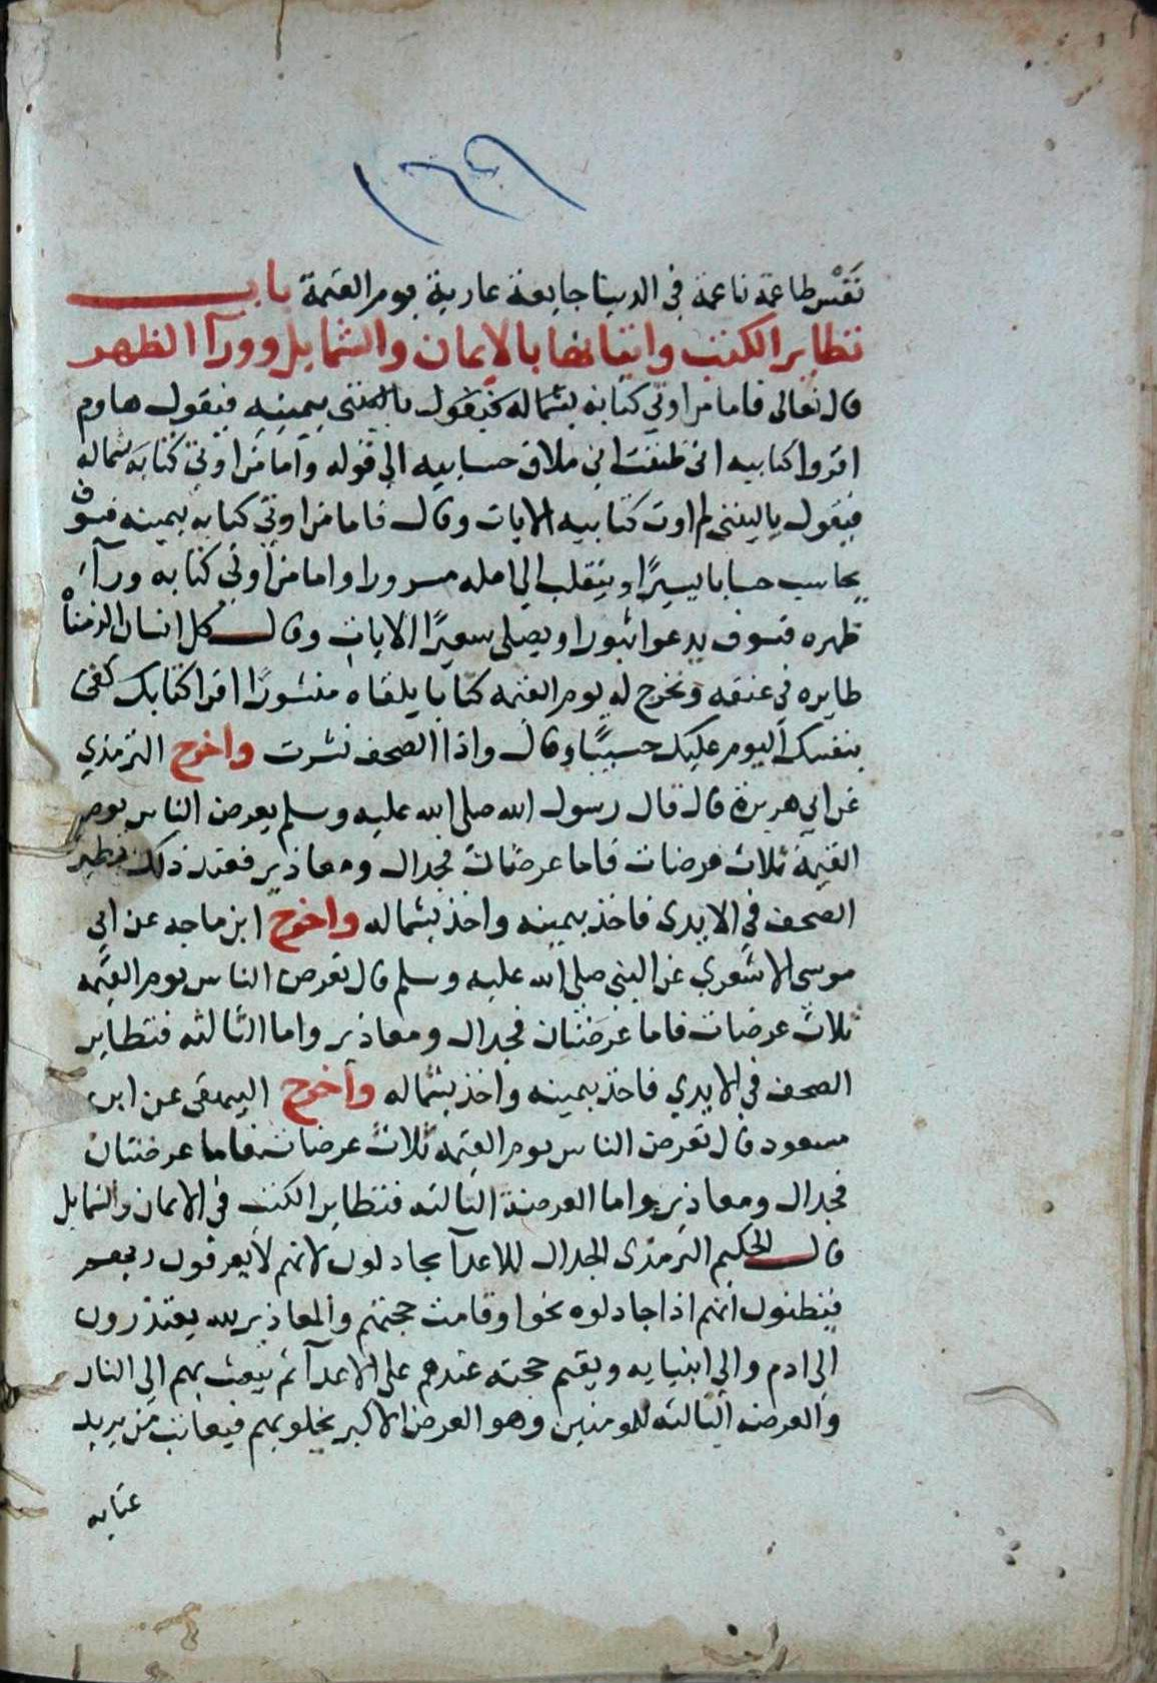 ١٣٩
نَفْس طاعمة ناعمة في الدنيا جايعة عارية يوم القيمة باب
تطاير الكتب واتيانها بالايمان والشمايل وورآ الظهر
قال تعالى فاما من اوتي كتابه بيمينه فيقول هاوم
اقروا كتابيه اني ظننت اني ملاق حسابيه الي قوله واما من اوتي كتابه بشماله
فيقول ياليتني لم اوت كتابيه الايات وقال فاما من اوتي كتابه بيمينه فسوف
يحاسب حسابا يسيرًا وينقلب الي اهله مسرورا واما من اوتي كتابه ورآء
ظهره فسوف يدعوا ثبورا ويصلى سعيرًا الايات وقال وكل انسان الزمناه
طايره في عنقه ونخرج له يوم القيمه كتابا يلقاه منشورًا اقرا كتابك كفى
بنفسك اليوم عليك حسيبًا وقال واذا الصحف نشرت واخرج الترمذي
عن ابي هريرة قال قال رسول الله صلى الله عليه وسلم يعرض الناس يوم
القيمة ثلاث عرضات فاما عرضتان فجدال ومعاذير فعند ذلك تطير
الصحف في الايدى فاخذ بيمينه واخذ بشماله واخرج ابن ماجه عن ابي
موسى الاشعري عن النبي صلى الله عليه وسلم قال تعرض الناس يوم القيمه
ثلاث عرضات فاما عرضتان فجدال ومعاذير واما الثالثه فتطاير
الصحف في الايدي فاخذ بيمينه واخذ بشماله واخرج البيهقى عن ابن
مسعود قال تعرض الناس يوم القيمه ثلاث عرضات فاما عرضتان
فجدال ومعاذير واما العرضة الثالثه فتطاير الكتب في الايمان والشمايل
قال الحكيم الترمذى الجدال للاعدآ يجادلون لانهم لا يعرفون ربهم
فيظنون انهم اذا جادلوه نجوا وقامت حجتهم والمعاذير لله يعتذرون
الى ادم والي انبيايه ويقيم حجته عندهم على الاعدآ ثم يبعث بهم الي النار
والعرضه الثالثه للمومنين وهو العرض الاكبر يخلو بهم فيعاتب من يريد
عتابه